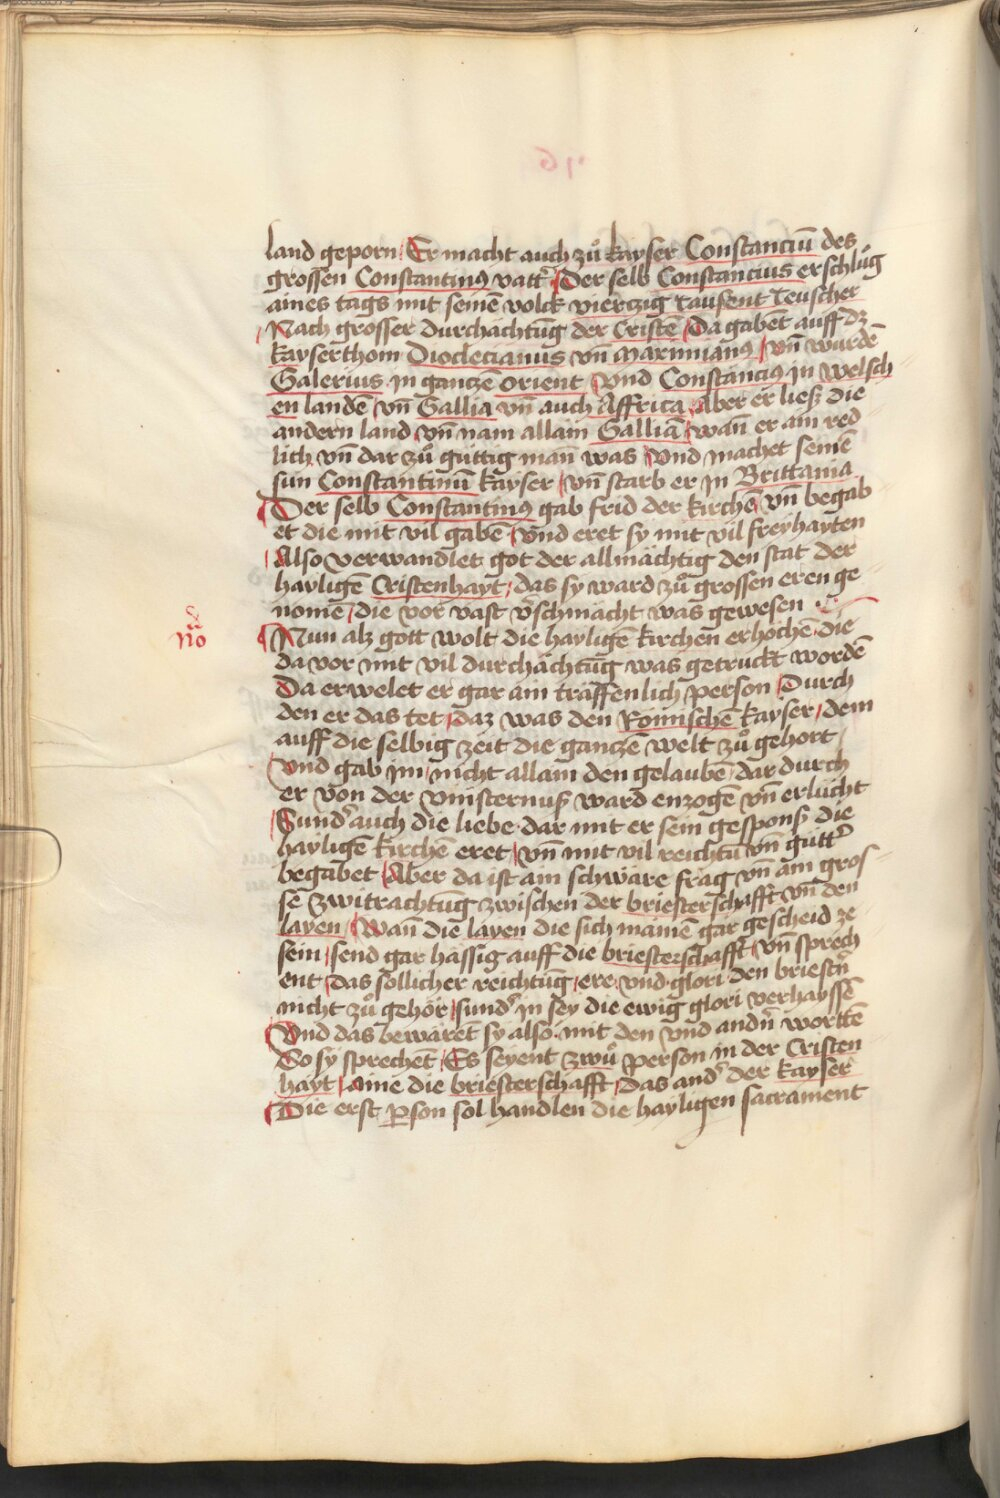 land geporn Er macht auch zuͦ kayser Constanciū des
grossen Constantinꝰ vattˀ Der selb Constancius erschluͦg
aines tags mit seinē volck viertzig tausent teuscher
Nach grosser durchächtūg der Cristē Da gabēt auff dz
kayserthom Dioclecianus vn̄ Maximianꝰ vn̄ wurdē
Galerius in gantzē orient vnd Constanciꝰ in welsch
en landē vn̄ Gallia vn̄ auch Affrica Aber er ließ die
andern land vn̄ nam allain Galliā wan̄ er ain red
lich vn̄ dar zuͦ guͤttig man was Vnd machet seinē
sun Constantinū kayser vn̄ starb er in Brittania
Der selb Constantinꝰ gab frid der kirchē vn̄ begab
et die mit vil gabē vnd eret sy mit vil freyhayten
Also verwandlet got der allmächtig den stat der
hayligē Cristenhayt das sy ward zuͦ grossen eren ge
nomē die vor vast v̄schmächt was gewesen
no
Nun alz gott wolt die haylige kirchen erhöchē die
da vor mit vil durchächtūg was getruckt wordē
Da erwelet er gar ain träffenlich person Durch
den er das tet daz was den Römischē kayser dem
auff die selbig zeit die gantzē welt zuͦ gehort
Vnd gab im nicht allain den gelaubē dar durch
er von der vinsternuß ward enzogē vn̄ erlücht
Sundˀ auch die liebe dar mit er sein gesponß die
hayligē kirchē eret vn̄ mit vil reichtū vn̄ güttˀ
begabet Aber da ist ain schwäre frag vn̄ ain gros
sē zwitrachtūg zwischen der briesterschafft vn̄ den
layen Wan̄ die layen die sich mainē gar gescheid ze
sein send gar hässig auff die briesterschafft vn̄ sprech
ent das söllicher reichtūg ere vnd glori den briestˀn
nicht zuͦ gehör sundˀ in sey die ewig glori verhayssē
Vnd das bewärēt sy also mit den vnd andˀn worttē
So sy sprechēt Es seyent zwuͦ person in der Cristen
hayt aine die briesterschafft Das andˀ der kayser
Die erst ꝑson sol handlen die hayligen sacrament